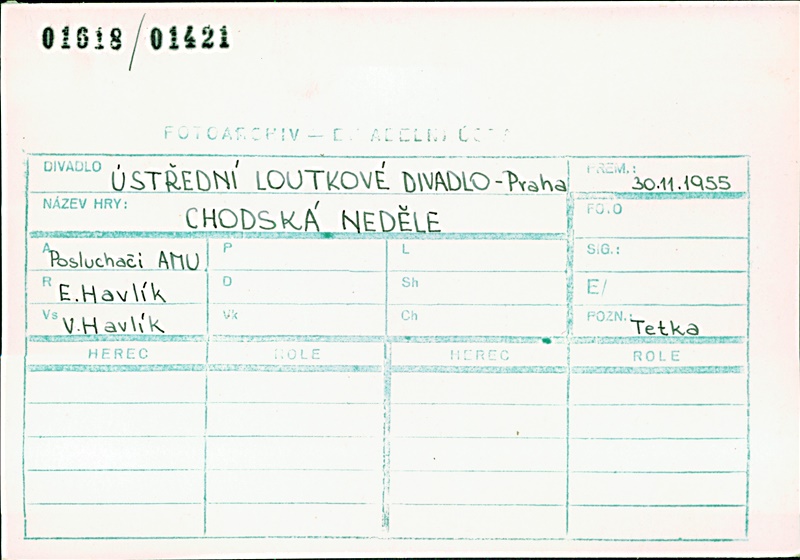 01618/01421
FOTOARCHIV —
DIVADLO ÚSTŘEDNÍ LOUTKOVÉ DIVADLO-Praha PREM.: 30.11.1955
NÁZEV HRY: CHODSKÁ NEDĚLE FO.O
A Posluchači AMU P L SIG.:
R E.Havlík D Sh E/
Vs V.Havlík Vk Ch POZN.: Tetka
HEREC ROLE HEREC ROLE